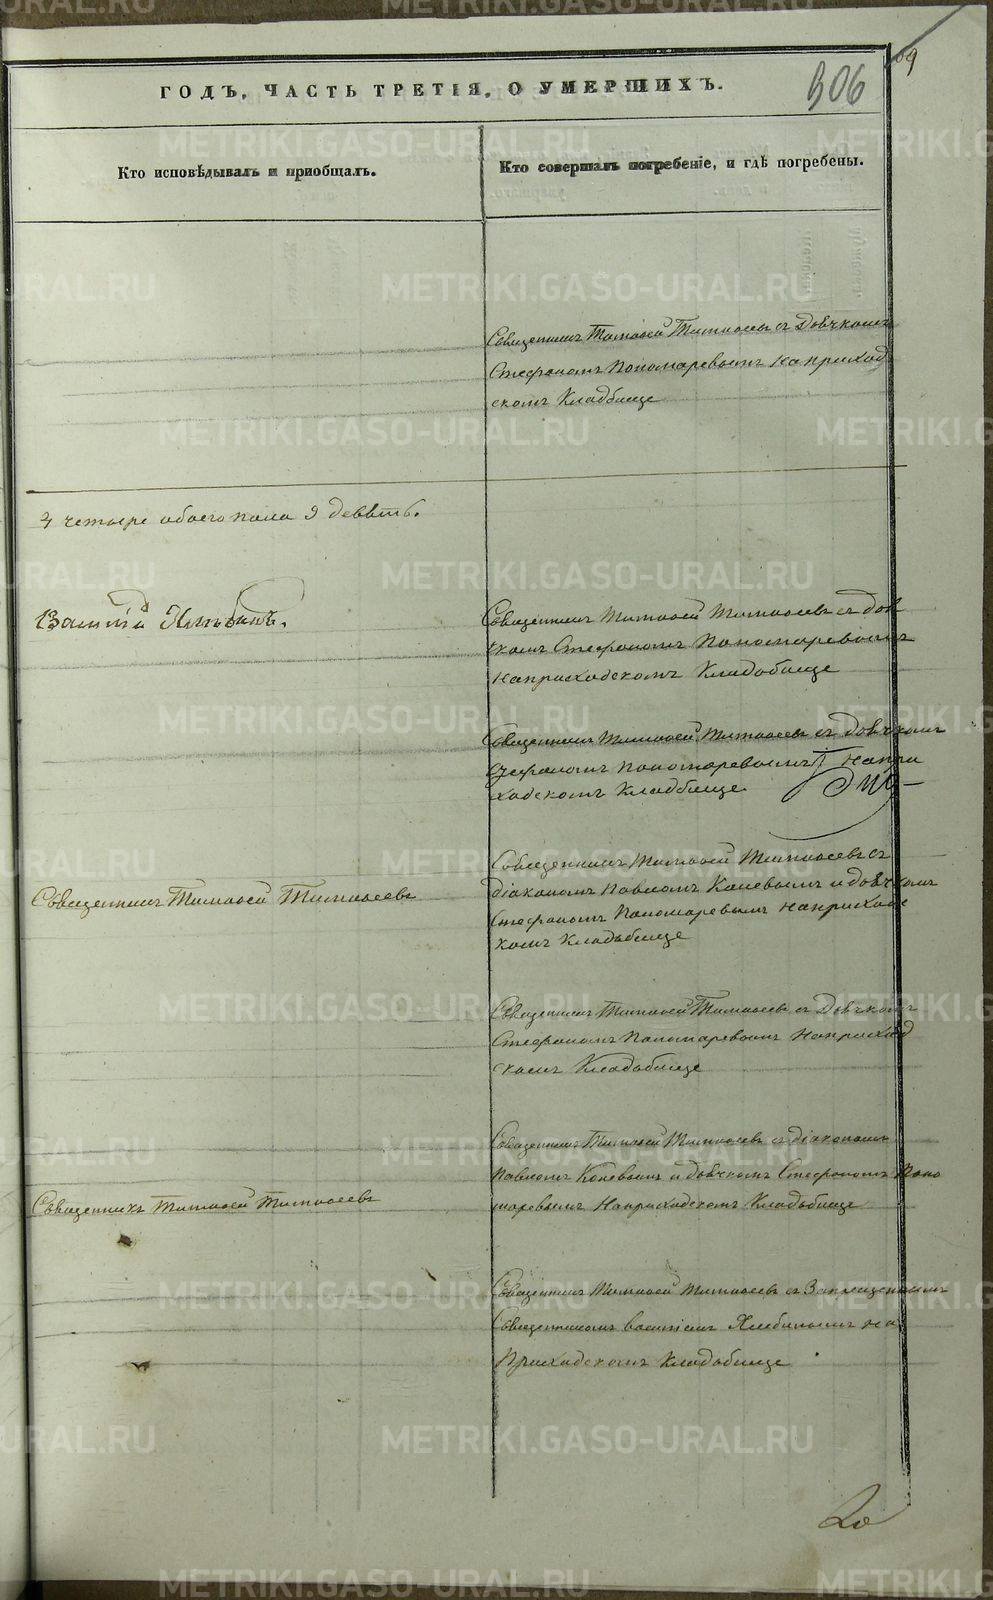 69
306
ГОДЪ, ЧАСТЬ ТРЕТІЯ, О УМЕРШИХЪ.
Кто исповѣдывалъ и пріобщалъ.
Кто совершалъ погребеніе, и гдѣ погребены.
Священникъ Тимофей Тимофеевъ съ Дьячкомъ
Стефаномъ Пономаревымъ на приход
скомъ Кладбище
4 четыре обоего пола 9 девять.
Священникъ Тимофей Тимофеевъ съ дья
чкомъ Стефаномъ Пономаревымъ
на приходскомъ Кладобище
Священникъ Тимофей Тимофеевъ съ дьячкомъ
Стефаномъ Пономаревымъ на при
ходскомъ Кладбище
Священникъ Тимофей Тимофеевъ
Священникъ Тимофей Тимофеевъ съ
діакономъ Павломъ Коневымъ и дьячкомъ
Стефаномъ Пономаревымъ на приходс
комъ Кладобище
Священникъ Тимофей Тимофеевъ съ Дьячкомъ
Стефаномъ Пономаревымъ на приход
комъ Кладобище
Священникъ Тимофей Тимофеевъ
Священникъ Тимофей Тимофеевъ съ діакономъ
Павломъ Коневымъ и дьячкомъ Стефаномъ Поно
маревымъ на приходскомъ Кладобище
Священникъ Тимофей Тимофеевъ съ Запрещеннымъ
Священникомъ Василіемъ Хлебинымъ на
Приходскомъ Кладобище
METRIKI.GASO-URAL.RU